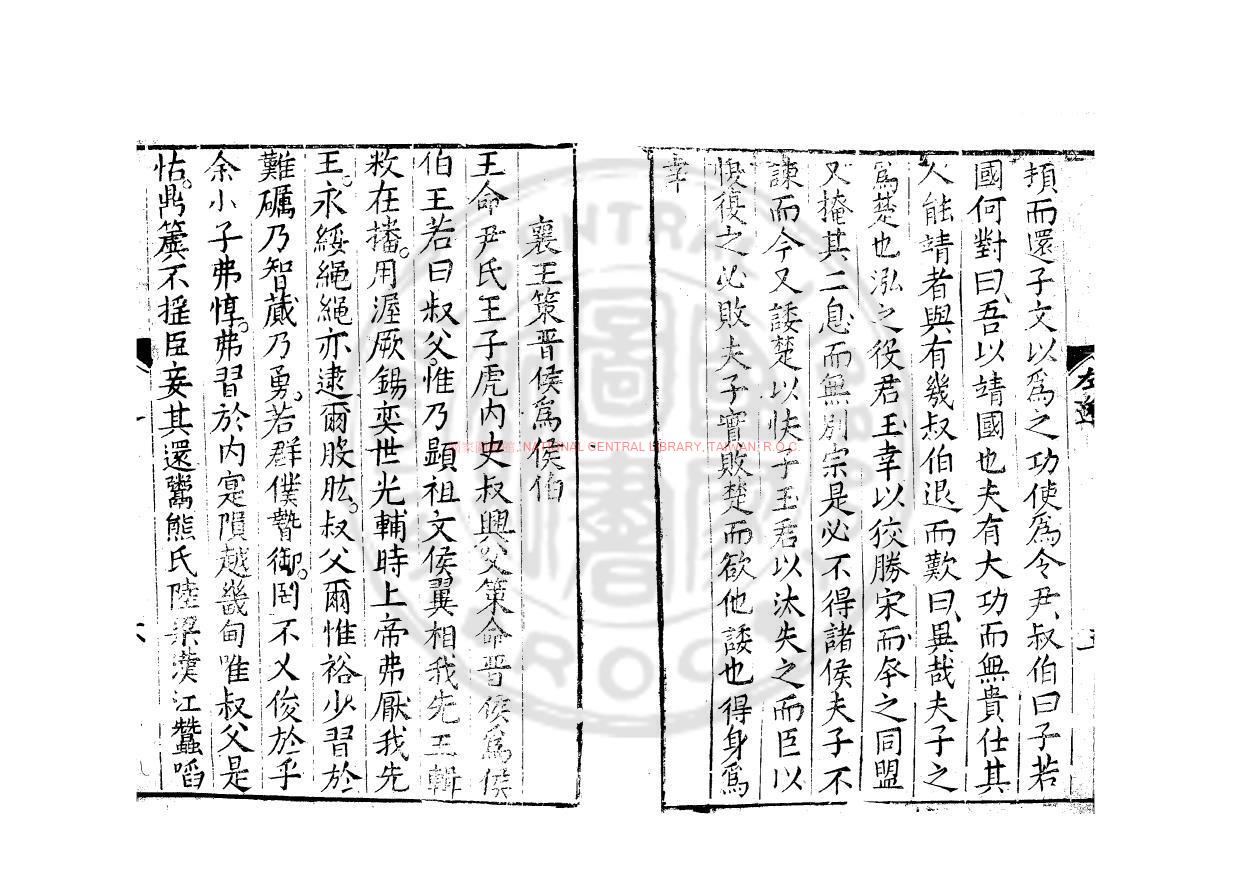 頓而還子文以爲之功使爲令尹叔伯曰子若
國何對曰吾以靖國也夫有大功而無貴仕其
人能靖者與有幾叔伯退而歎曰異哉夫子之
爲楚也泓之役君王幸以狡勝宋而夲之同盟
又掩其二息而無別宗是必不得諸侯夫子不
諫而今又諉楚以快子玉君以汰失之而臣以
愎復之必敗夫子實敗楚而欲他諉也得身爲
幸
左逸
五
襄王策晋侯爲侯伯
王命尹氏王子虎内史叔興父策命晋侯爲侯
伯王若曰叔父惟乃顯祖文侯翼相我先王輯
敉在播用渥厥錫奕世光輔時上帝弗厭我先
王永綏繩繩亦逮爾股肱叔父爾惟裕少習於
難礪乃智蕆乃勇若群僕暬御罔不乂俊於乎
余小子弗惇弗習於内寔隕越畿甸唯叔父是
怙鼎簴不摇臣妾其還鬻熊氏陸梁漢江蠶啗
六
國家圖書館, NATIONAL CENTRAL LIBRARY, TAIWAN, R.O.C.